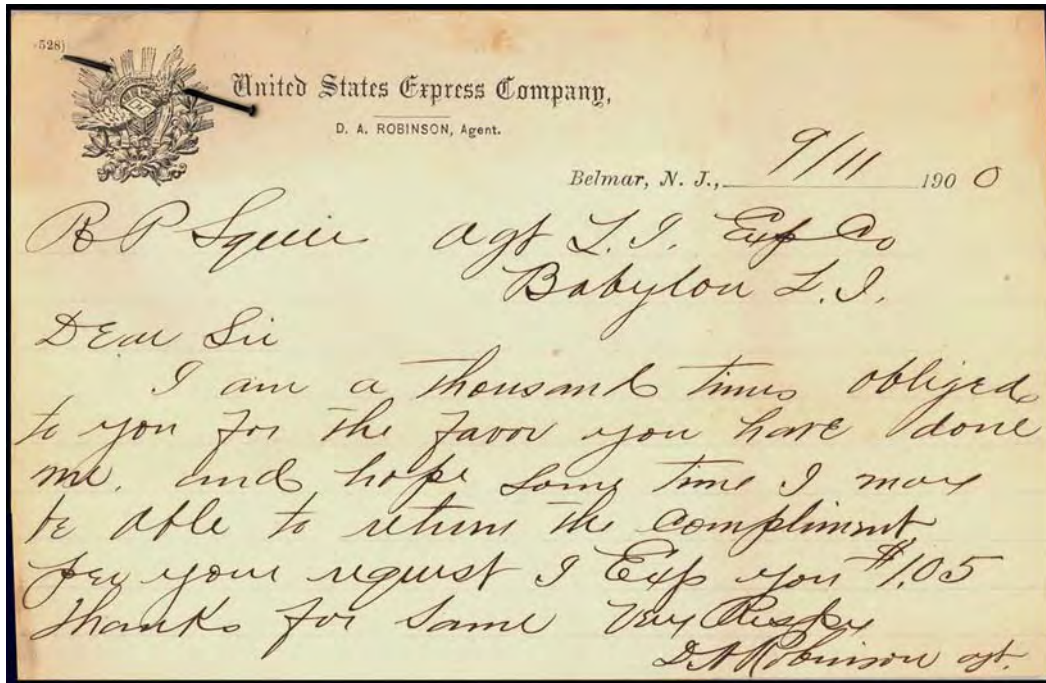 (528)
United States Express Company,
D. A. ROBINSON, Agent.
Belmar, N. J., 9/11 1900
R P Squir agt L. I. Exp Co
Babylon L. I.
Dear Sir
I am a thousand times obliged
to you for the favor you have done
me. and hope some time I may
be able to return the compliment
per your request I Exp you $1.05
Thanks for same Very Respy
D A Robinson agt.